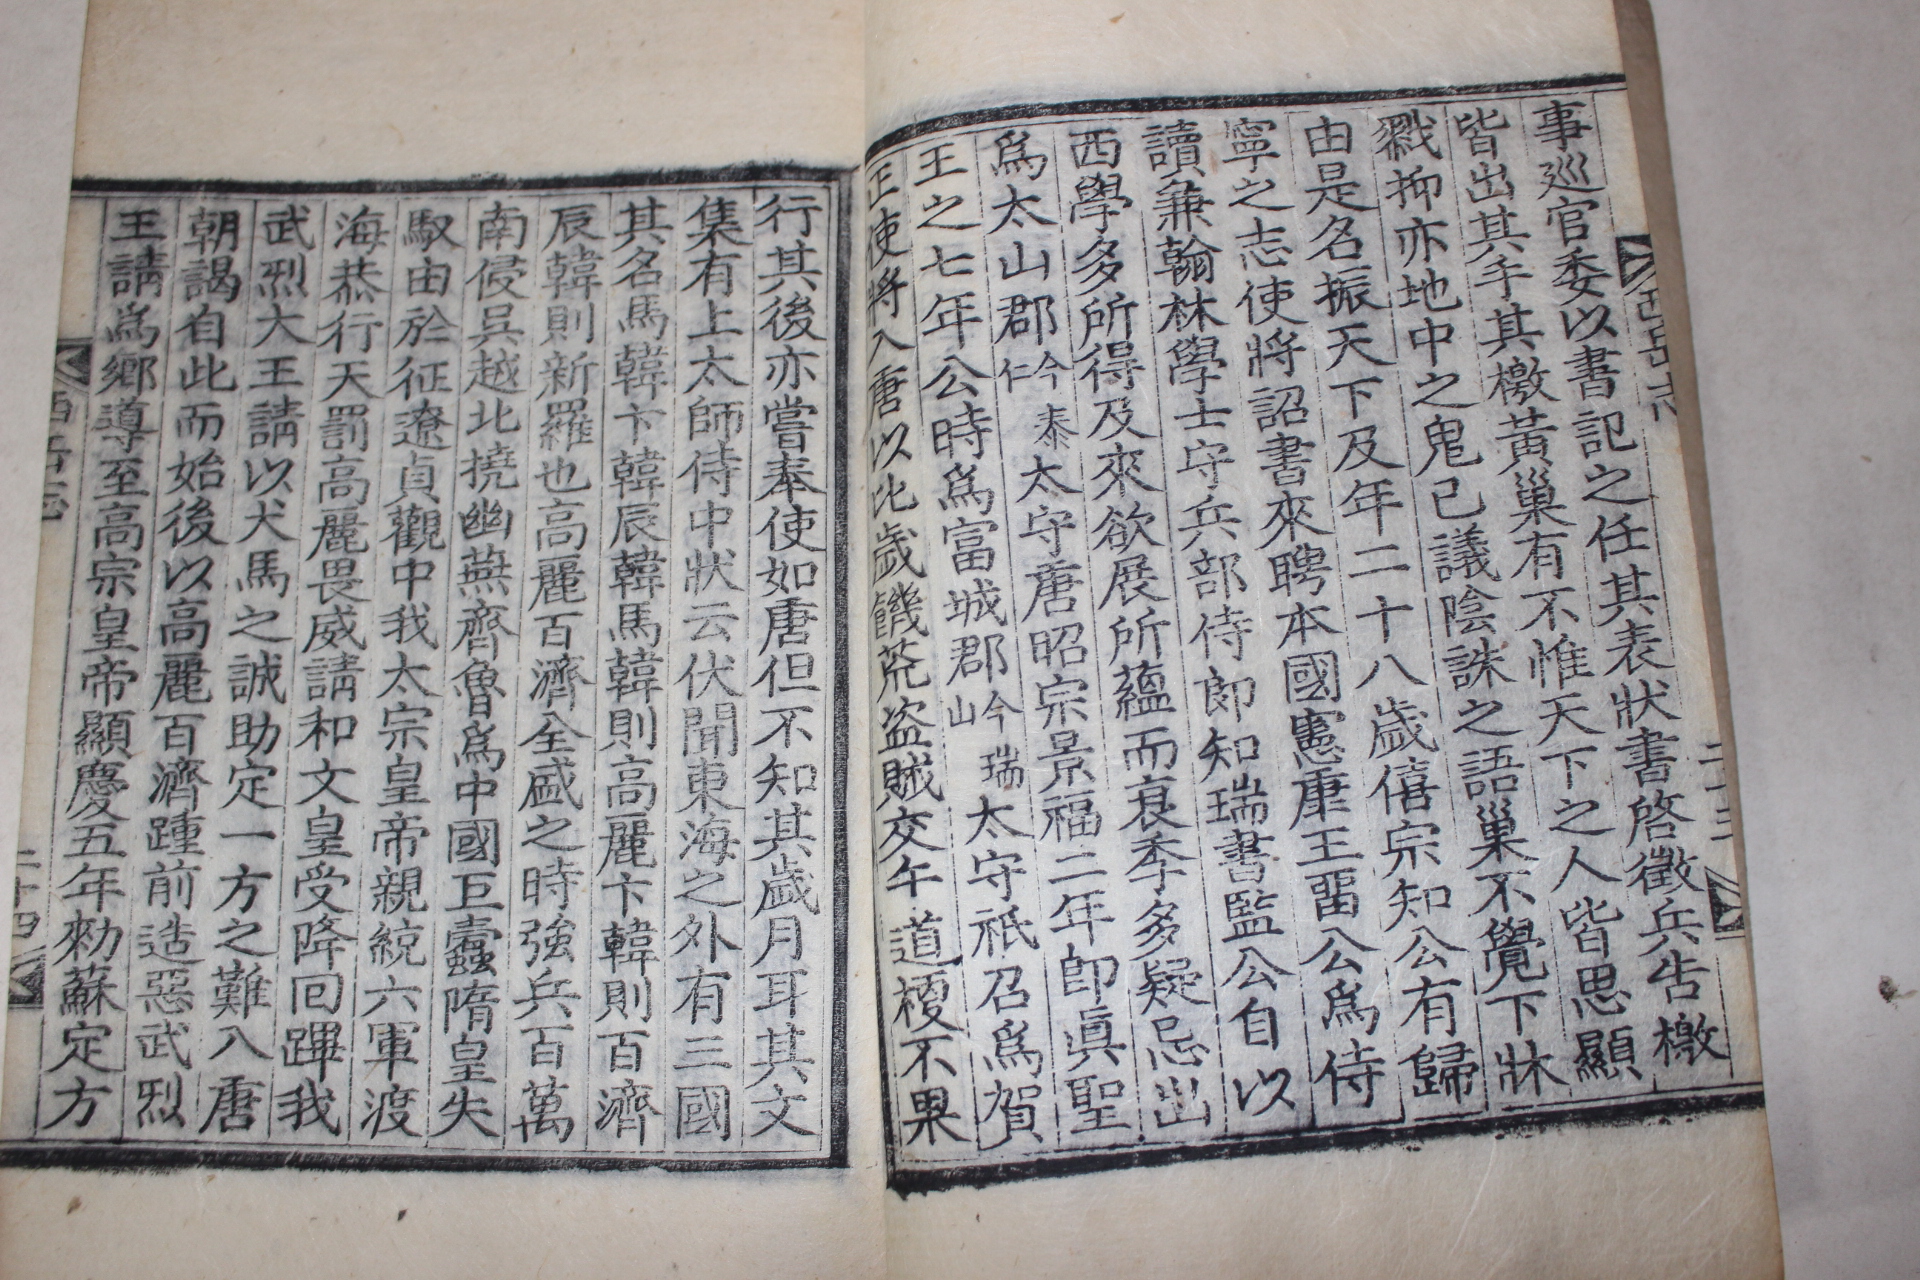 事巡官委以書記之任其表狀書啓徵兵告檄
皆出其手其檄黃巢有不惟天下之人皆思顯
戮抑亦地中之鬼已議陰誅之語巢不覺下牀
由是名振天下及年二十八歲僖宗知公有歸
寧之志使將詔書來聘本國憲康王留公爲侍
讀兼翰林學士守兵部侍郞知瑞書監公自以
西學多所得及來欲展所蘊而衰季多疑忌出
爲太山郡今泰仁太守唐昭宗景福二年卽眞聖
王之七年公時爲富城郡今瑞山太守祇召爲賀
正使將入唐以比歲饑荒盜賊交午道梗不果
行其後亦嘗奉使如唐但不知其歲月耳其文
集有上太師侍中狀云伏聞東海之外有三國
其名馬韓卞韓辰韓馬韓則高麗卞韓則百濟
辰韓則新羅也高麗百濟全盛之時強兵百萬
南侵吳越北撓幽燕齊魯爲中國巨蠹隋皇失
馭由於征遼貞觀中我太宗皇帝親統六軍渡
海恭行天罰高麗畏威請和文皇受降回蹕我
武烈大王請以犬馬之誠助定一方之難入唐
朝謁自此而始後以高麗百濟踵前造惡武烈
王請爲鄉導至高宗皇帝顯慶五年勑蘇定方
西岳志
二十三
西岳志
二十四